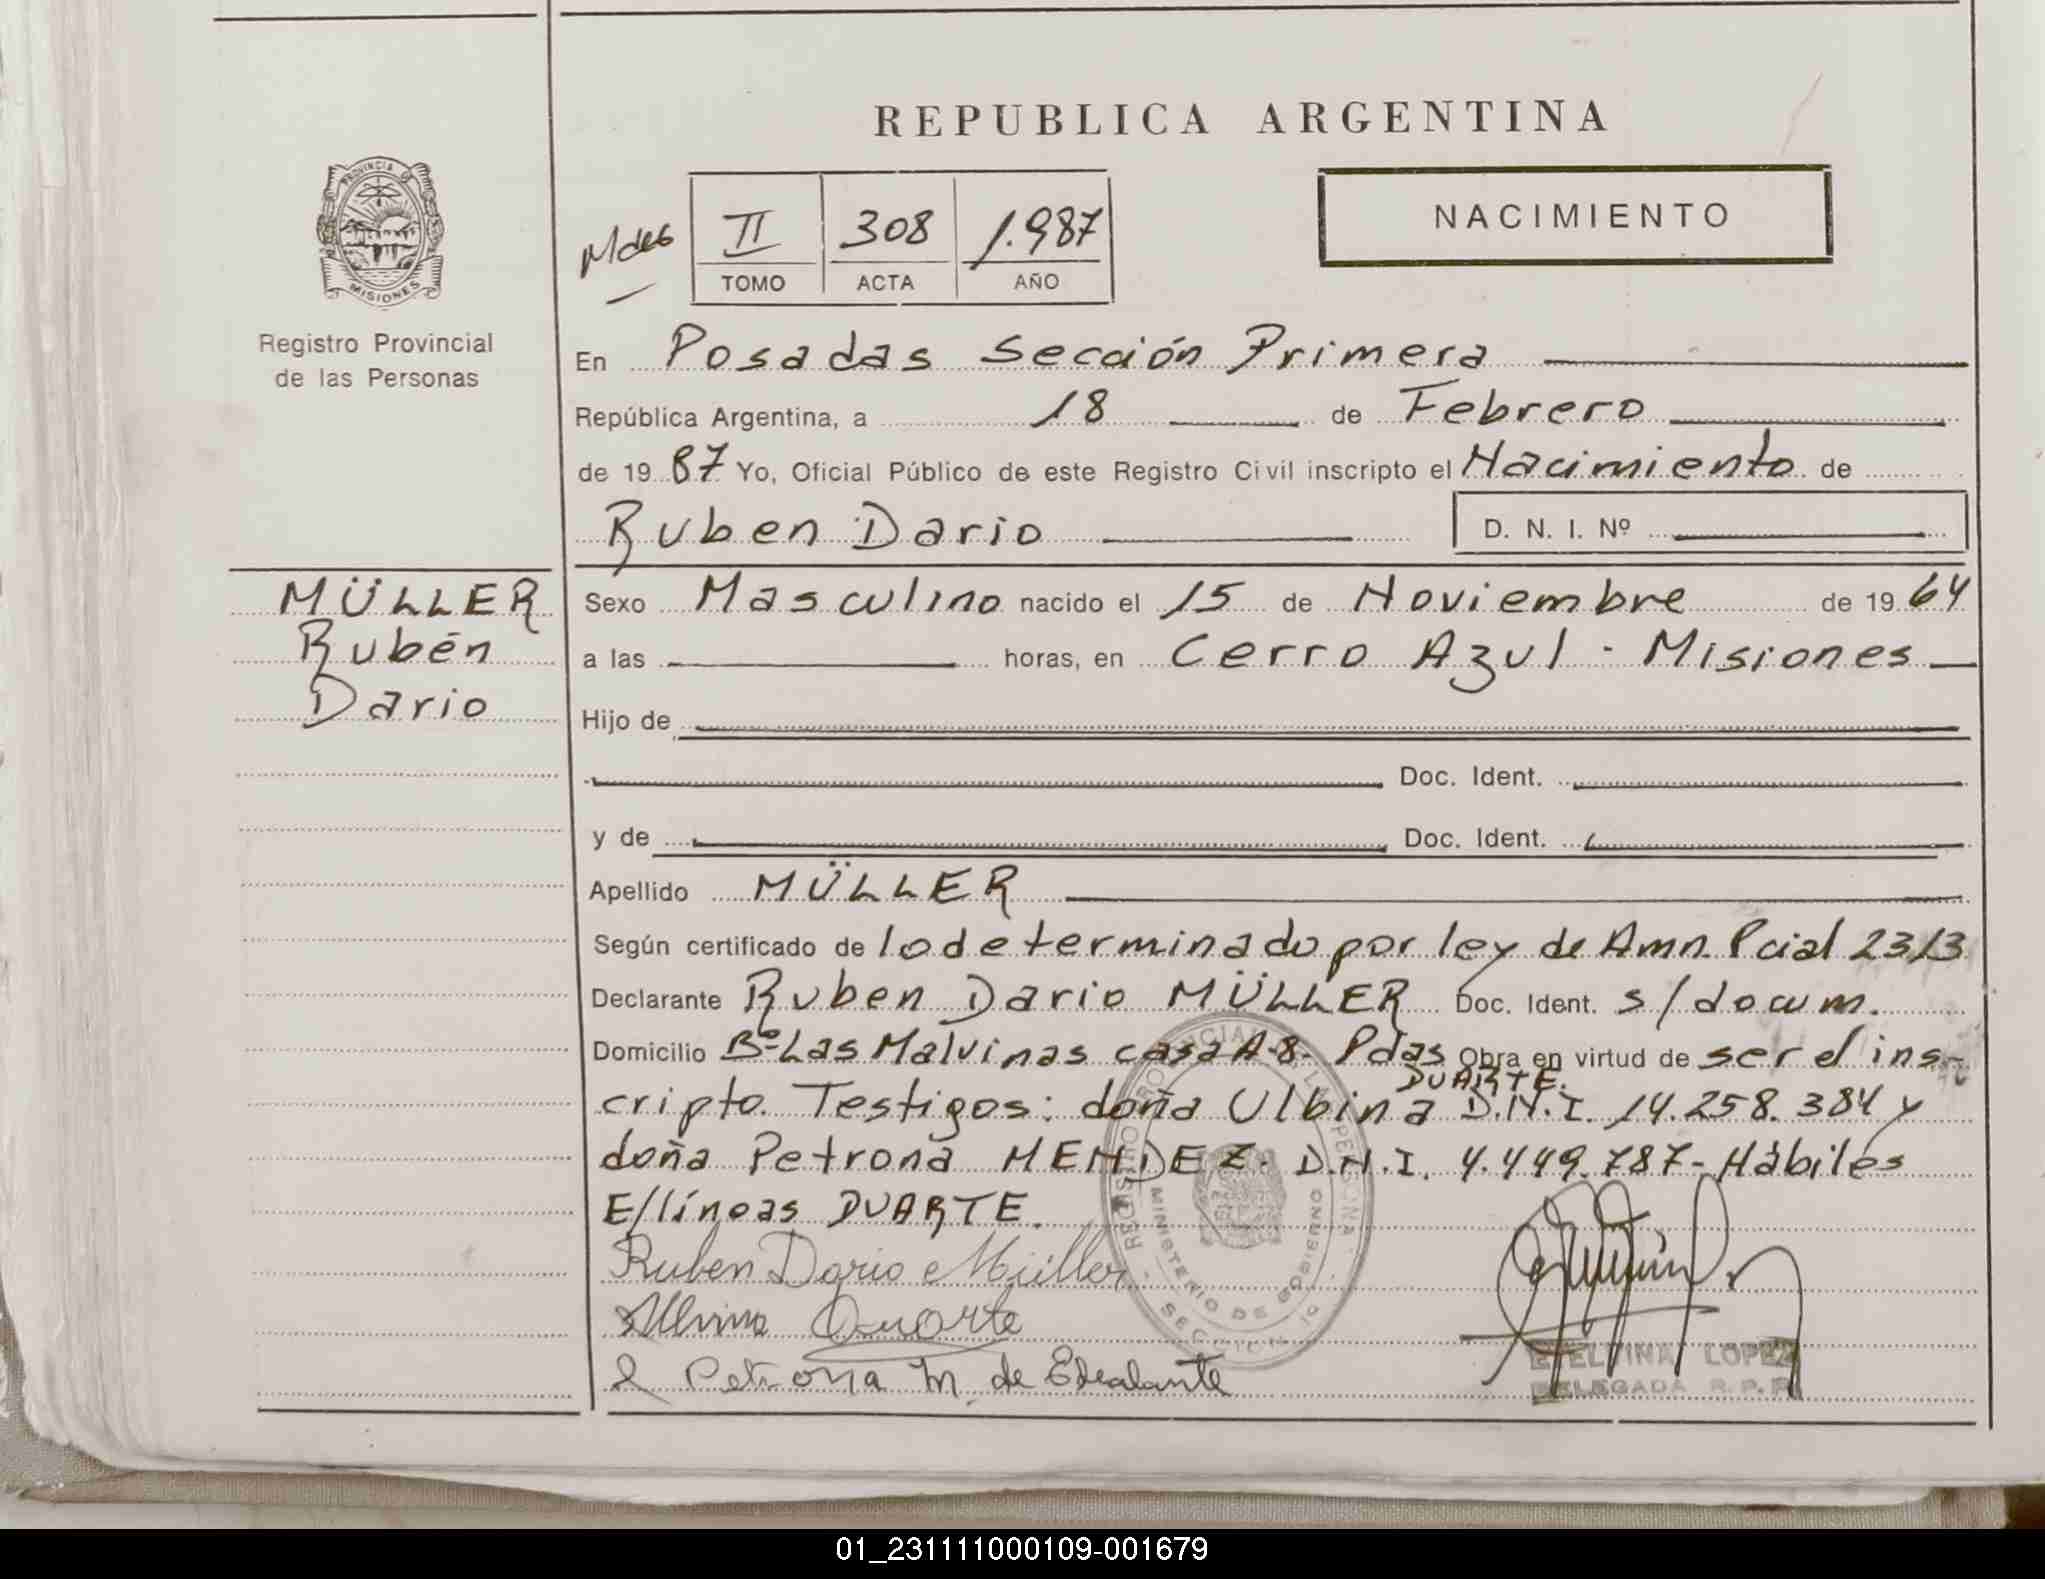 REPUBLICA ARGENTINA
PROVINCIA DE
MISIONES
Registro Provincial
de las Personas
Mdes
II 308 1.987
TOMO ACTA AÑO
NACIMIENTO
En Posadas Sección Primera
República Argentina, a 18 de Febrero
de 1987 Yo, Oficial Público de este Registro Civil inscripto el Nacimiento de
Ruben Dario D. N. I. Nº
MÜLLER
Rubén
Dario
Sexo Masculino nacido el 15 de Noviembre de 1964
a las horas, en Cerro Azul - Misiones
Hijo de
Doc. Ident.
y de Doc. Ident.
Apellido MÜLLER
Según certificado de lo determinado por ley de Amn. Pcial 2313
Declarante Ruben Dario MÜLLER Doc. Ident. s/docum.
Domicilio Bº Las Malvinas casa A-8- Pdas Obra en virtud de ser el ins-
DUARTE.
cripto. Testigos: doña Ulbina D.N.I. 14.258.384 y
doña Petrona MENDEZ- D.N.I. 4.449.787- Hábiles
E/líneas DUARTE.
Ruben Dario Müller
Duarte
Petrona M de
REGISTRO PROVINCIAL DE LAS PERSONAS
MINISTERIO DE GOBIERNO
SECCION 1º
ETELVINA LOPEZ
DELEGADA R.P.P.
01_231111000109-001679